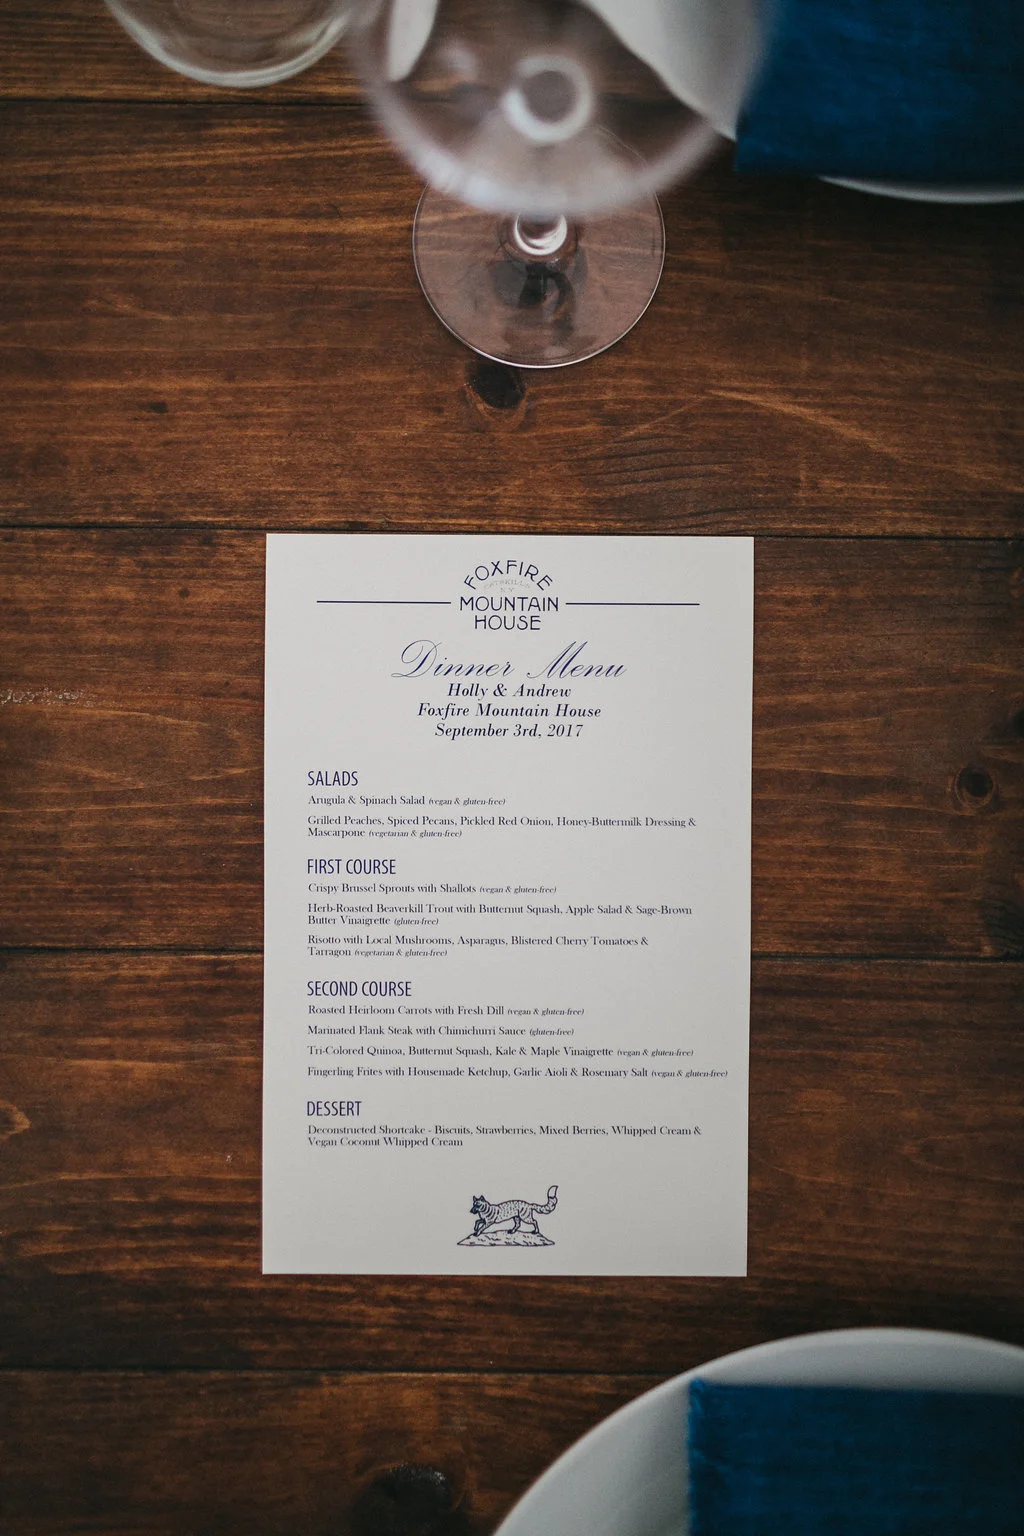 FOXFIRE
CATSKILLS
N.Y.
MOUNTAIN
HOUSE
Dinner Menu
Holly & Andrew
Foxfire Mountain House
September 3rd, 2017
SALADS
Arugula & Spinach Salad (vegan & gluten-free)
Grilled Peaches, Spiced Pecans, Pickled Red Onion, Honey-Buttermilk Dressing &
Mascarpone (vegetarian & gluten-free)
FIRST COURSE
Crispy Brussel Sprouts with Shallots (vegan & gluten-free)
Herb-Roasted Beaverkill Trout with Butternut Squash, Apple Salad & Sage-Brown
Butter Vinaigrette (gluten-free)
Risotto with Local Mushrooms, Asparagus, Blistered Cherry Tomatoes &
Tarragon (vegetarian & gluten-free)
SECOND COURSE
Roasted Heirloom Carrots with Fresh Dill (vegan & gluten-free)
Marinated Flank Steak with Chimichurri Sauce (gluten-free)
Tri-Colored Quinoa, Butternut Squash, Kale & Maple Vinaigrette (vegan & gluten-free)
Fingerling Frites with Housemade Ketchup, Garlic Aioli & Rosemary Salt (vegan & gluten-free)
DESSERT
Deconstructed Shortcake - Biscuits, Strawberries, Mixed Berries, Whipped Cream &
Vegan Coconut Whipped Cream